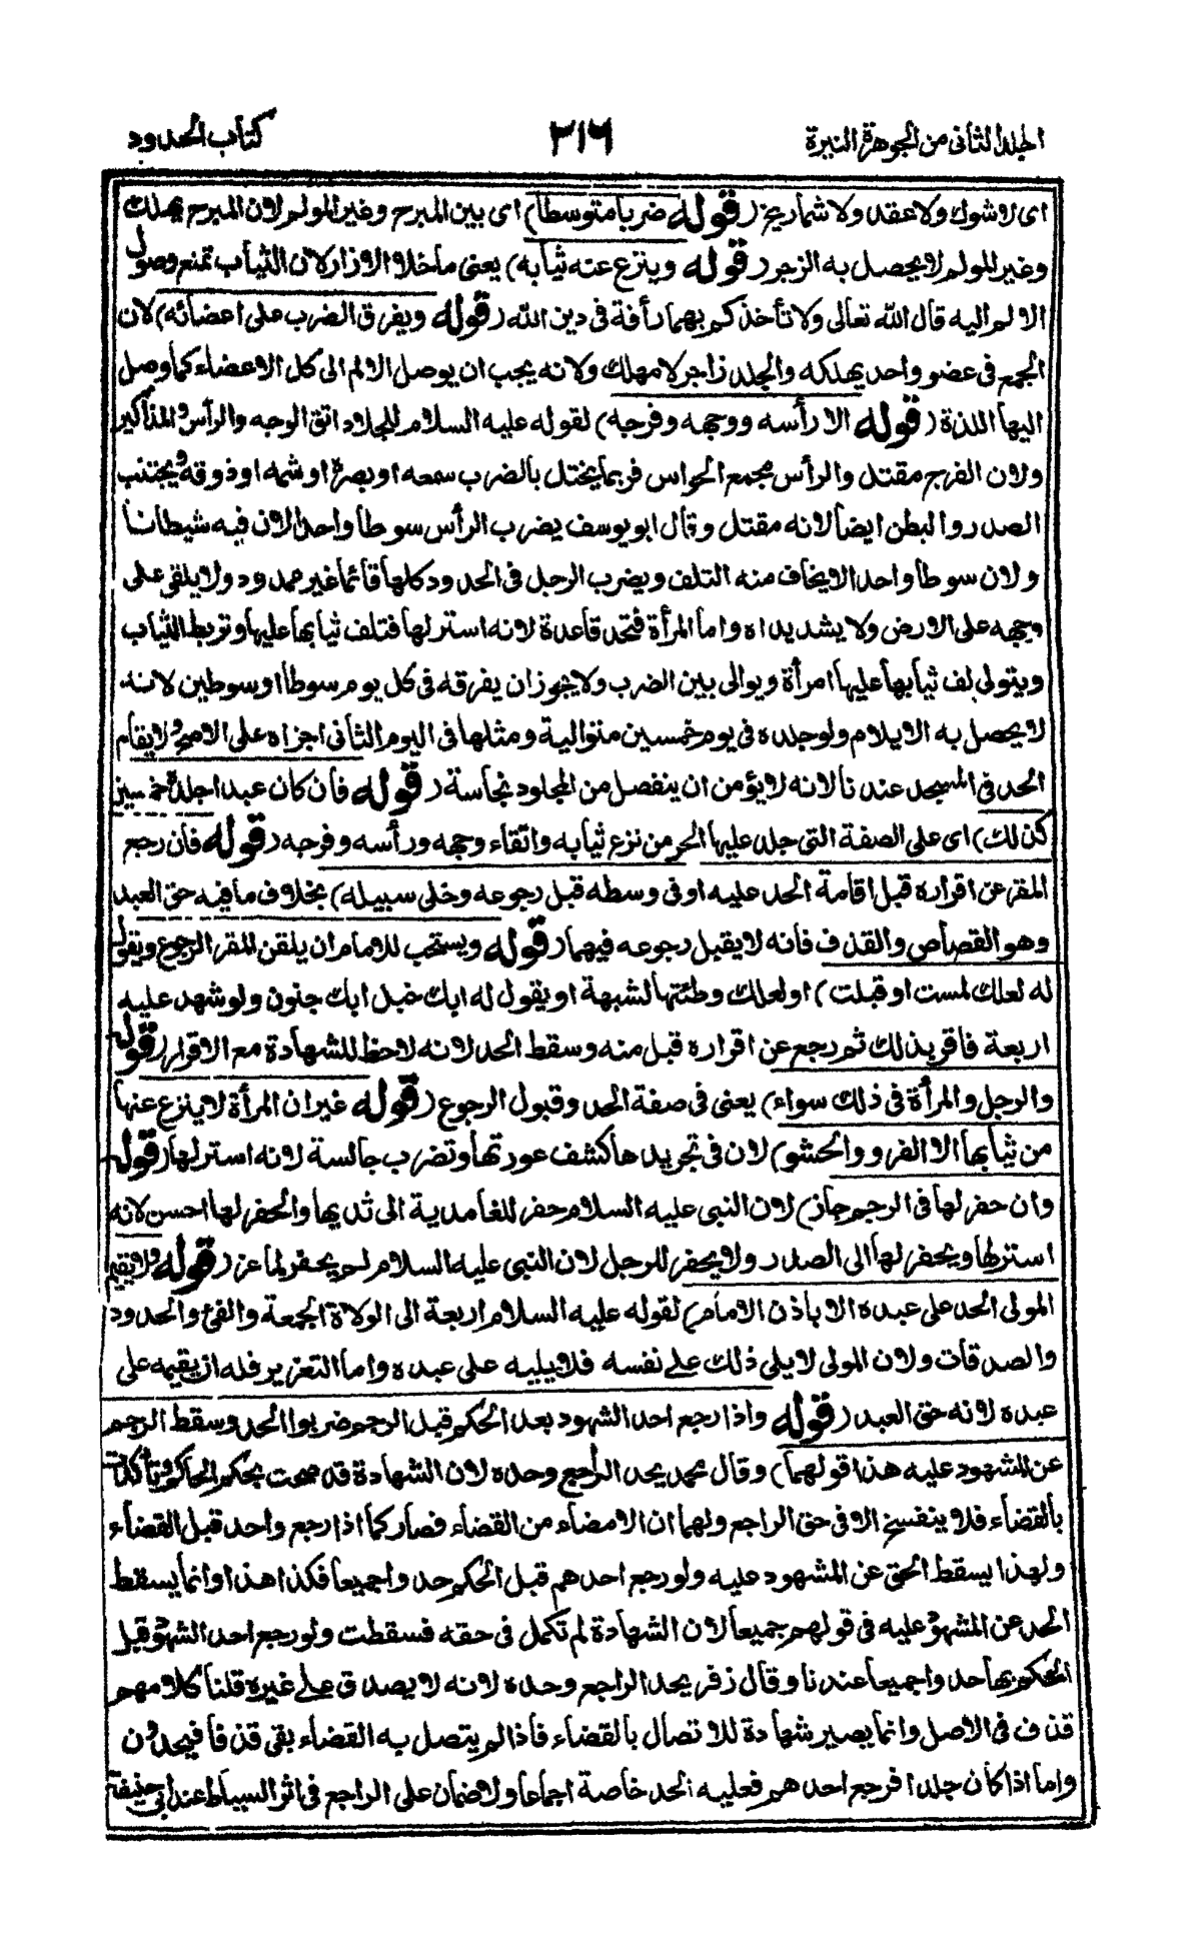 المجلد الثانى من الجوهرة النيرة
٣١٦
كتاب الحدود
اى لا شوك ولا عقد ولا شماريخ (قوله ضربا متوسطا) اى بين المبرح وغير المولم لان المبرح يهلك
وغير المولم لا يحصل به الزجر (قوله وينزع عنه ثيابه) يعنى ما خلا الازار لان الثياب تمنع وصول
الالم اليه قال الله تعالى ولا تأخذكم بهما رأفة فى دين الله (قوله ويفرق الضرب على اعضائه) لان
الجمع فى عضو واحد يهلكه والجلد زاجر لا مهلك ولانه يجب ان يوصل الالم الى كل الاعضاء كما وصل
اليها اللذة (قوله الا رأسه ووجهه وفرجه) لقوله عليه السلام للجلاد اتق الوجه والرأس والمذاكير
ولان الفرج مقتل والرأس مجمع الحواس فربما يختل بالضرب سمعه او بصره او شمه او ذوقه ويجتنب
الصدر والبطن ايضا لانه مقتل وقال ابو يوسف يضرب الرأس سوطا واحدا لان فيه شيطانا
ولان سوطا واحدا لا يخاف منه التلف ويضرب الرجل فى الحدود كلها قائما غير ممدود ولا يلقى على
وجهه على الارض ولا يشد يداه واما المرأة فتحد قاعدة لانه استر لها فتلف ثيابها عليها وتربط الثياب
ويتولى لف ثيابها عليها امرأة ويوالى بين الضرب ولا يجوز ان يفرقه فى كل يوم سوطا او سوطين لانه
لا يحصل به الايلام ولو جلده فى يوم خمسين متوالية ومثلها فى اليوم الثانى اجزاه على الاصح ولا يقام
الحد فى المسجد عندنا لانه لا يؤمن ان ينفصل من المجلود نجاسة (قوله فان كان عبدا جلده خمسين
كذلك) اى على الصفة التى جلد عليها الحر من نزع ثيابه واتقاء وجهه ورأسه وفرجه (قوله فان رجع
المقر عن اقراره قبل اقامة الحد عليه او فى وسطه قبل رجوعه وخلى سبيله) بخلاف ما فيه حق العبد
وهو القصاص والقذف فانه لا يقبل رجوعه فيهما (قوله ويستحب للامام ان يلقن المقر الرجوع ويقول
له لعلك لمست او قبلت) او لعلك وطئتها لشبهة او يقول له ابك خبل ابك جنون ولو شهد عليه
اربعة فاقر بذلك ثم رجع عن اقراره قبل منه وسقط الحد لانه لا حظ للشهادة مع الاقرار (قوله
والرجل والمرأة فى ذلك سواء) يعنى فى صفة الحد وقبول الرجوع (قوله غير ان المرأة لا ينزع عنها
من ثيابها الا الفرو والحشو) لان فى تجريدها كشف عورتها وتضرب جالسة لانه استر لها (قوله
وان حفر لها فى الرجم جاز) لان النبى عليه السلام حفر للغامدية الى ثديها والحفر لها احسن لانه
استر لها ويحفر لها الى الصدر ولا يحفر للرجل لان النبى عليه السلام لم يحفر لماعز (قوله ولا يقيم
المولى الحد على عبده الا باذن الامام) لقوله عليه السلام اربعة الى الولاة الجمعة والفئ والحدود
والصدقات ولان المولى لا يلى ذلك على نفسه فلا يليه على عبده واما التعزير فله ان يقيمه على
عبده لانه حق العبد (قوله واذا رجع احد الشهود بعد الحكم قبل الرجم ضربوا الحد وسقط الرجم
عن المشهود عليه هذا قولهما) وقال محمد يحد الراجع وحده لان الشهادة قد صحت بحكم الحاكم وتأكدت
بالقضاء فلا ينفسخ الا فى حق الراجع ولهما ان الامضاء من القضاء فصار كما اذا رجع واحد قبل القضاء
ولهذا يسقط الحق عن المشهود عليه ولو رجع احدهم قبل الحكم حدوا جميعا فكذا هذا وانما يسقط
الحد عن المشهود عليه فى قولهم جميعا لان الشهادة لم تكمل فى حقه فسقطت ولو رجع احد الشهود قبل
الحكم بها حدوا جميعا عندنا وقال زفر يحد الراجع وحده لانه لا يصدق على غيره قلنا كلامهم
قذف فى الاصل وانما يصير شهادة للاتصال بالقضاء فاذا لم يتصل به القضاء بقى قذفا فيحدون
واما اذا كان جلدا فرجع احدهم فعليه الحد خاصة اجماعا ولا ضمان على الراجع فى اثر السياط عند ابى حنيفة